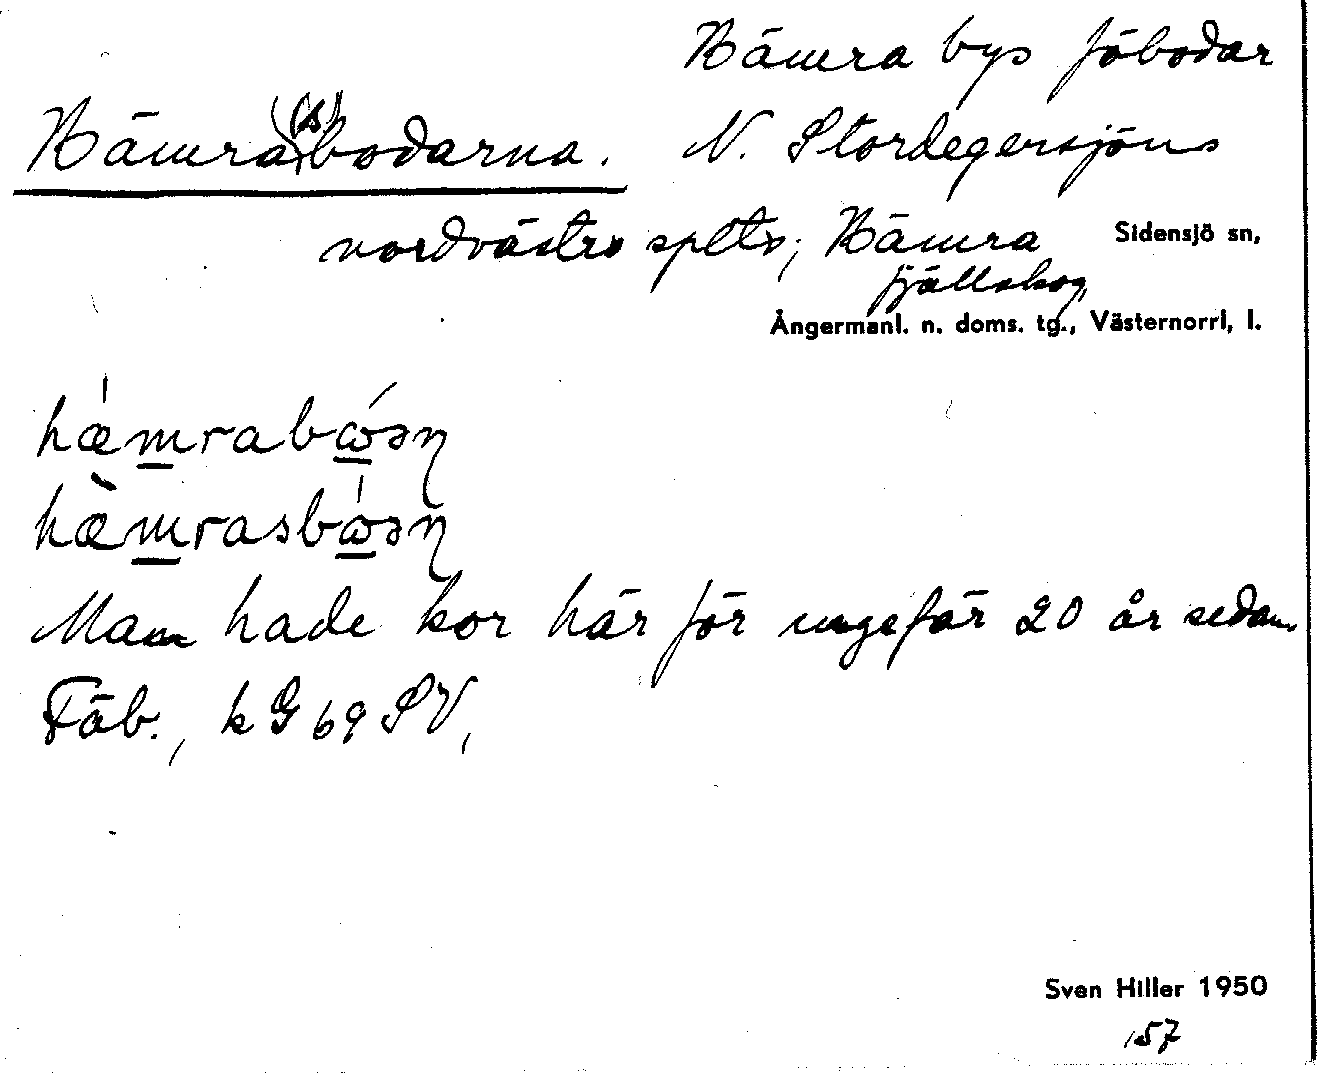 Hämra bys fäbodar
Hämra(s)bodarna. N. Stordegersjöns
nordvästra spets, Hämra Sidensjö sn,
fjällskog,
Ångermanl. n. doms. tg., Västernorrl, l.
hæ̀mrabώəƞ
hæ̀mrasbώəƞ
Man hade kor här för ungefär 20 år sedan.
Fäb., k G 69 SV,
Sven Hiller 1950
157